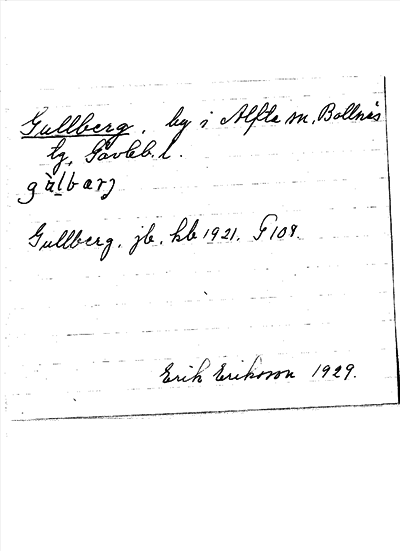 Gullberg, by i Alfta sn, Bollnäs
tg, Gävleb. l.
gùlbarj
Gullberg. jb. kb 1921. F 108.
Erik Eriksson 1929.